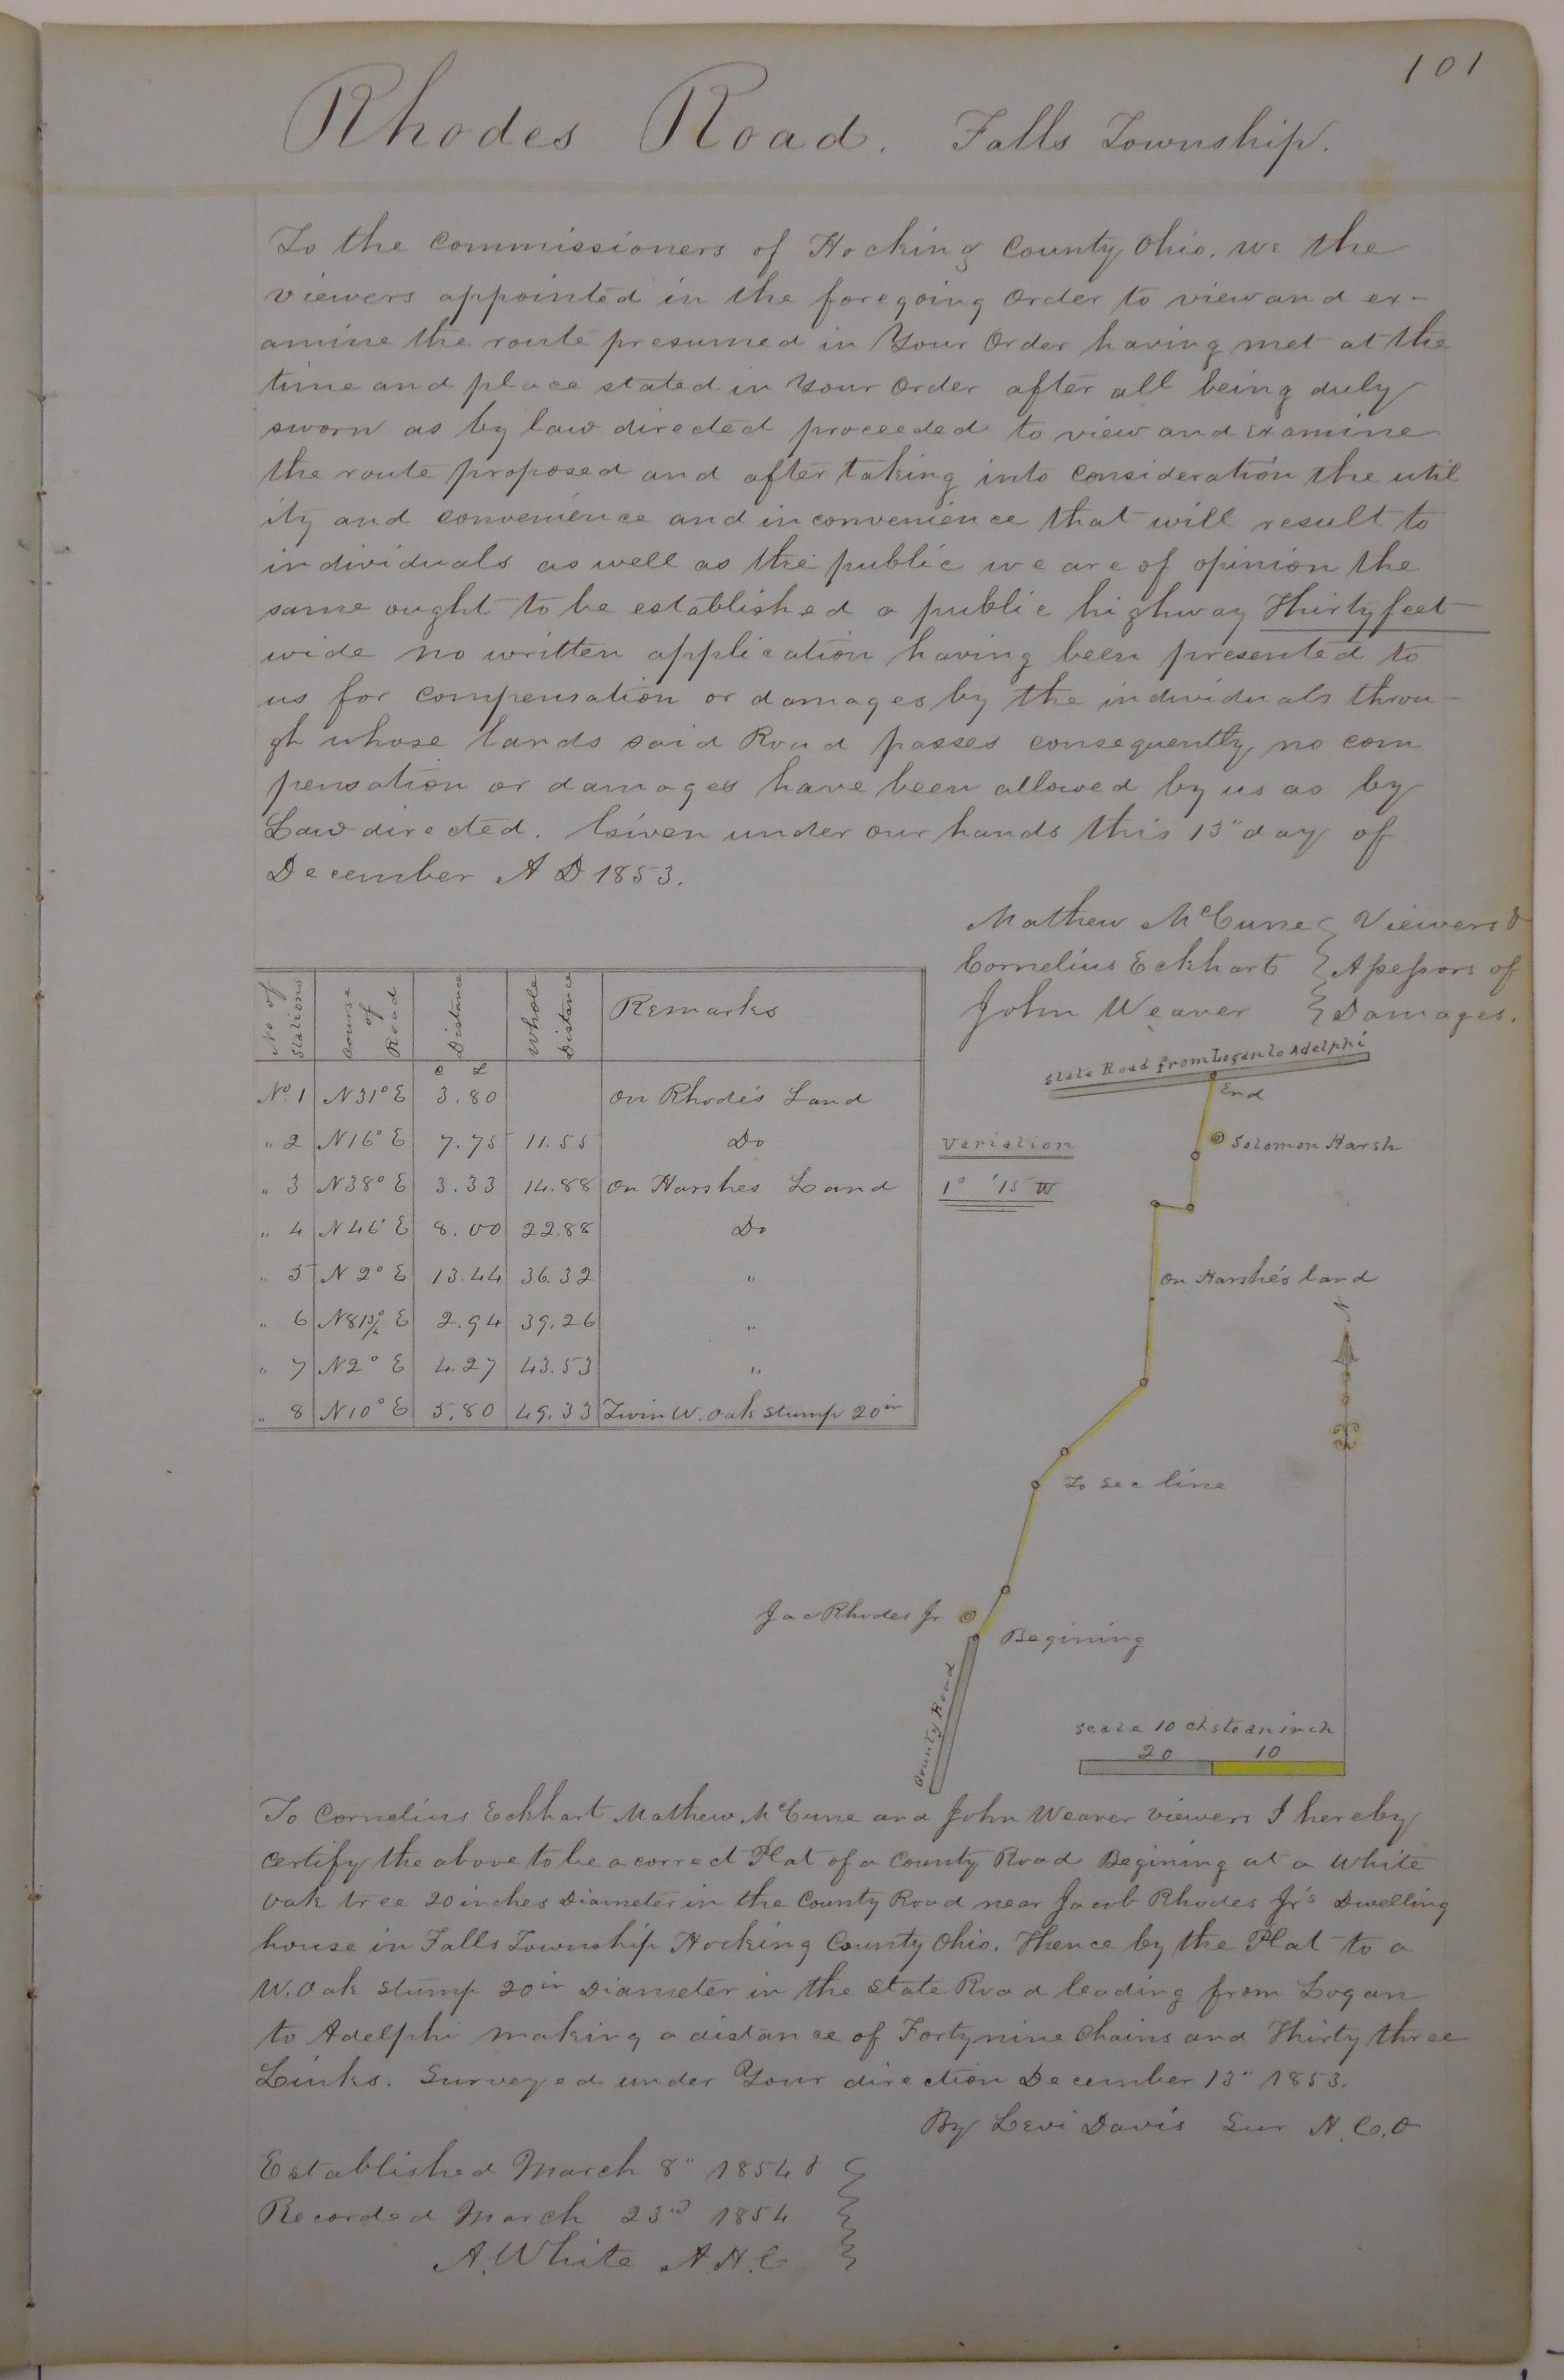 101
Rhodes Road. Falls Township.
To the Commissioners of Hocking County Ohio. We the
viewers appointed in the foregoing Order to view and ex-
amine the route presumed in Your Order having met at the
time and place stated in Your Order after all being duly
sworn as by law directed proceeded to view and examine
the route proposed and after taking into Consideration the util
ity and convenience and inconvenience that will result to
individuals as well as the public we are of opinion the
same ought to be established a public highway Thirty feet
wide no written application having been presented to
us for Compensation or damages by the individuals throu-
gh whose lands said Road passes consequently no com
pensation or damages have been allowed by us as by
Law directed. Given under our hands this 13" day of
December A D 1853.
Mathew McCune } Viewers &
Cornelius Eckhart } Assessors of
John Weaver } Damages.
No of Stations | Course of Road | Distance | Whole Distance | Remarks
C L
No. 1 | N 31° E | 3.80 | | On Rhode's Land
" 2 | N 16° E | 7.75 | 11.55 | Do
" 3 | N 38° E | 3.33 | 14.88 | On Harshes Land
" 4 | N 46° E | 8.00 | 22.88 | Do
" 5 | N 2° E | 13.44 | 36.32 | "
" 6 | E | 2.94 | 39.26 | "
" 7 | N 2° E | 4.27 | 43.53 | "
" 8 | N 10° E | 5.80 | 49.33 | Twin W. Oak Stump 20 in
State Road from Logan to Adelphi
End
Solomon Harsh
Variation
1° '15 W
On Harshe's land
To Sec line
Jac Rhodes Jr
Begining
County Road
Scale 10 chs to an inch
20 10
To Cornelius Eckhart Mathew McCune and John Weaver viewers I hereby
Certify the above to be a correct Plat of a County Road Begining at a White
Oak tree 20 inches Diameter in the County Road near Jacob Rhodes Jr's Dwelling
house in Falls Township Hocking County Ohio. Thence by the Plat to a
W. Oak Stump 20 in Diameter in the State Road leading from Logan
to Adelphi making a distance of Forty nine Chains and Thirty three
Links. Surveyed under Your direction December 13" 1853.
By Levi Davis Sur H.C.O
Established March 8" 1854 &
Recorded March 23rd 1854
A. White A.H.C